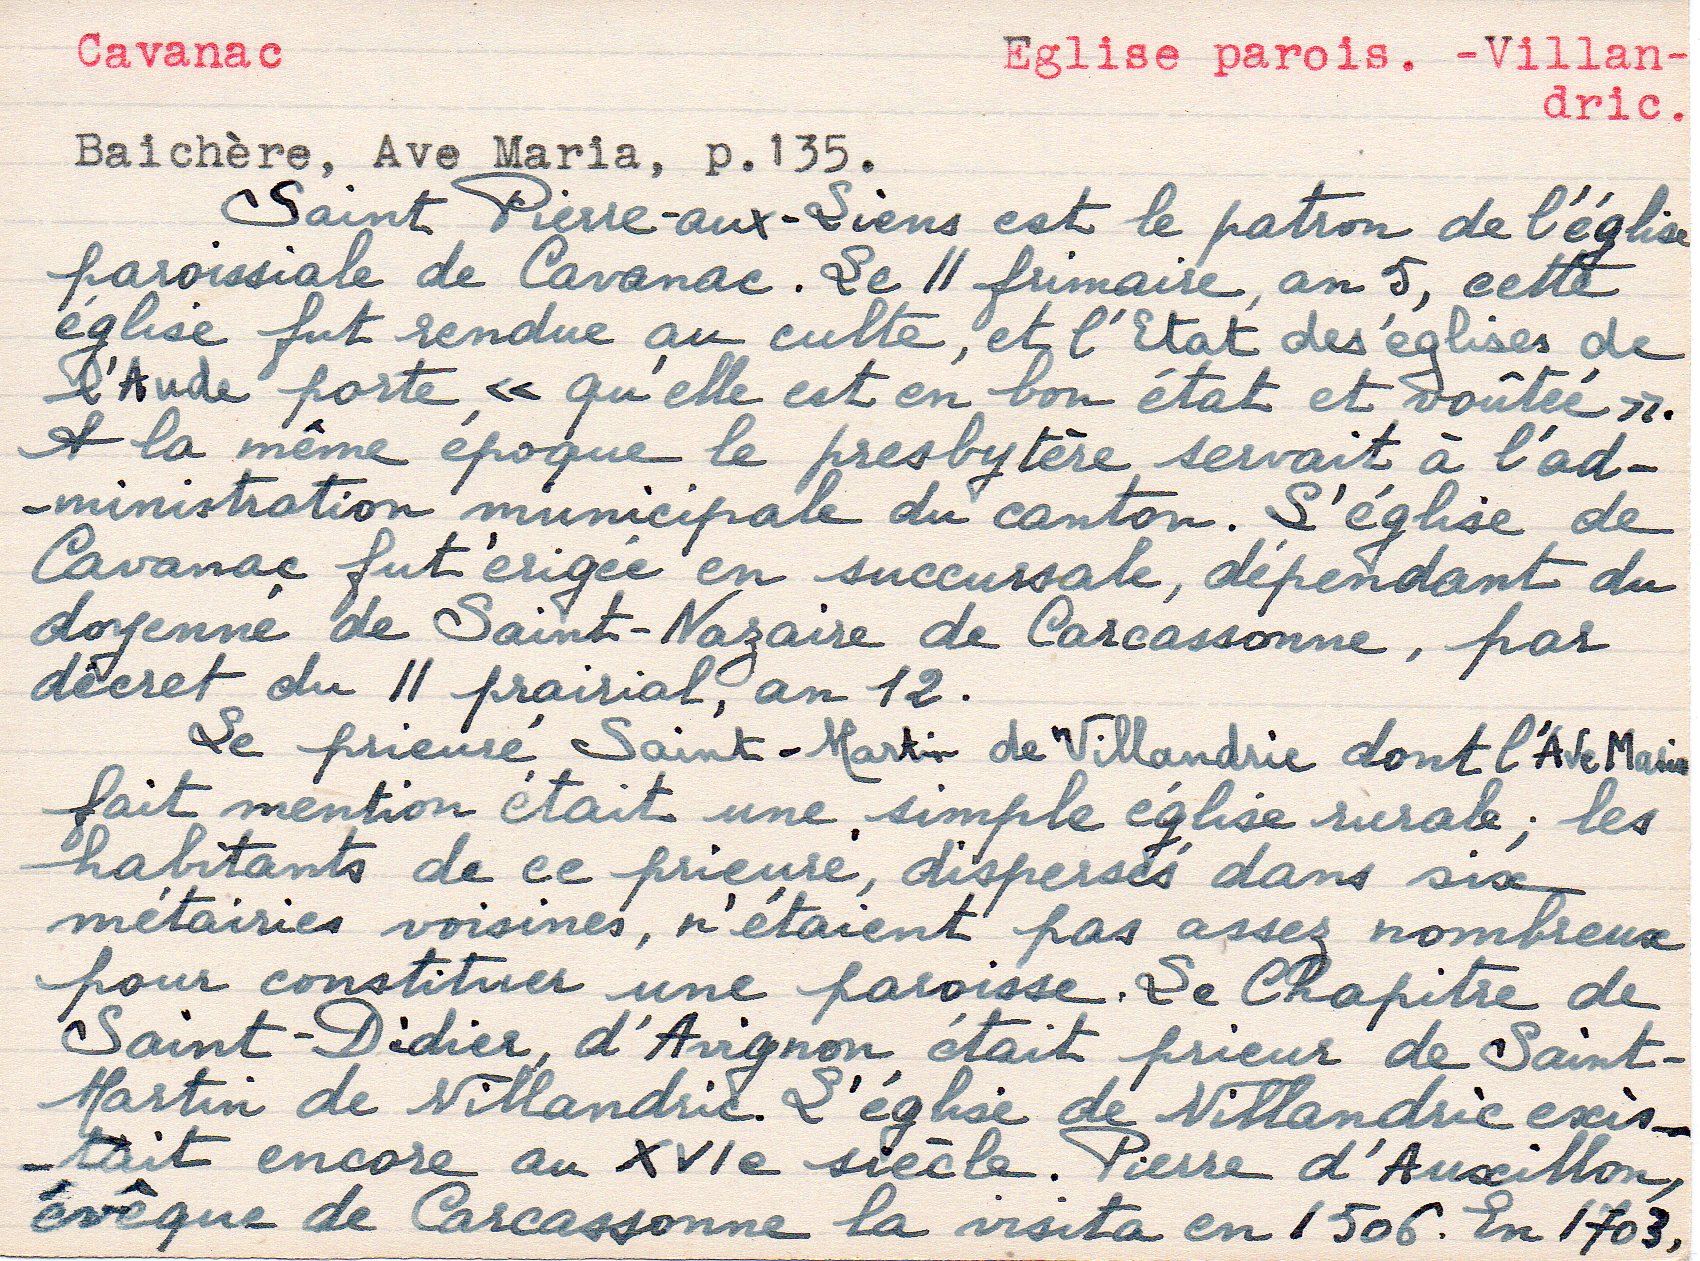 Cavanac Eglise parois. -Villan-
dric.
Baichère, Ave Maria, p.135.
Saint Pierre-aux-Liens est le patron de l'église
paroissiale de Cavanac. Le 11 frimaire, an 5, cette
église fut rendue au culte, et l'Etat des églises de
l'Aude porte « qu'elle est en bon état et voûtée ».
A la même époque le presbytère servait à l'ad-
-ministration municipale du canton. L'église de
Cavanac fut érigée en succursale, dépendant du
doyenné de Saint-Nazaire de Carcassonne, par
décret du 11 prairial, an 12.
Le prieuré Saint-Martin de Villandric dont l'Ave Maria
fait mention était une simple église rurale; les
habitants de ce prieuré, dispersés dans six
métairies voisines, n'étaient pas assez nombreux
pour constituer une paroisse. Le Chapitre de
Saint-Didier, d'Avignon était prieur de Saint-
Martin de Villandric. L'église de Villandric exis-
-tait encore au XVIe siècle. Pierre d'Auxillon,
évêque de Carcassonne la visita en 1506. En 1703,